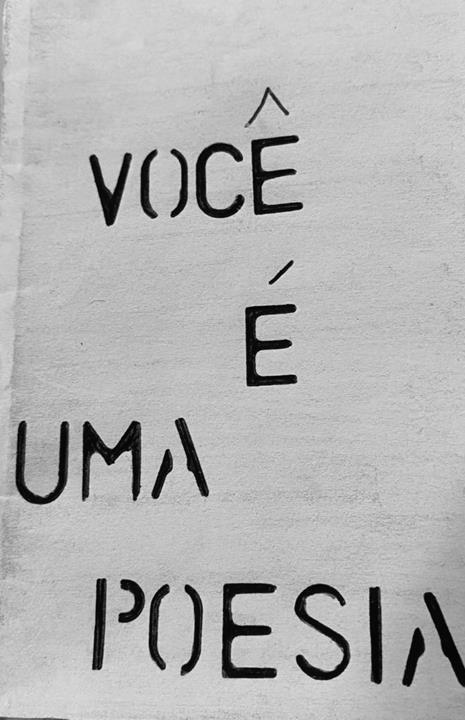 VOCÊ
É
UMA
POESIA